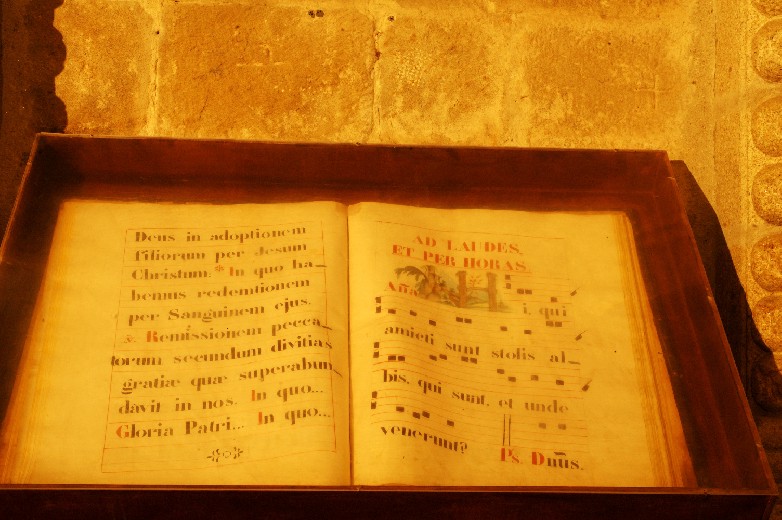 Deus in adoptionem
filiorum per Jesum
Christum. * In quo ha_
bemus redemtionem
per Sanguinem ejus.
℣. Remissionem pecca_
torum secundum divitias
gratiæ quæ superabun_
davit in nos. In quo...
Gloria Patri... In quo...
AD LAUDES,
ET PER HORAS.
Aña. i, qui
amicti sunt stolis al_
bis, qui sunt, et unde
venerunt?
Ps. Dnūs.